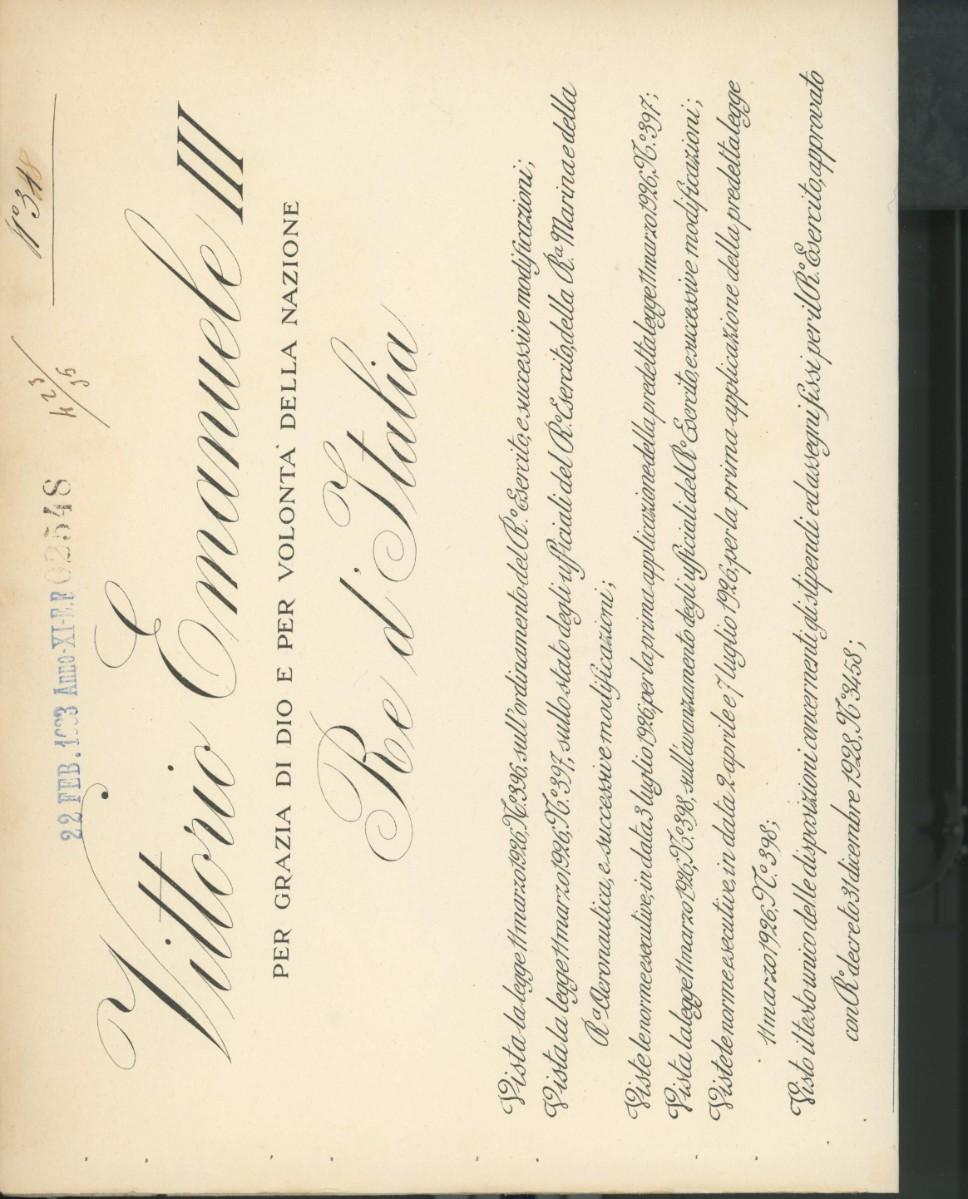 22 FEB. 1933 Anno-XI-E.F 02548
N° 318
Vittorio Emanuele III
PER GRAZIA DI DIO E PER VOLONTÀ DELLA NAZIONE
Re d'Italia
Vista la legge 11 marzo 1926, N.° 396, sull'ordinamento del R.° Esercito, e successive modificazioni;
Vista la legge 11 marzo 1926, N.° 397, sullo stato degli ufficiali del R.° Esercito, della R.ª Marina e della
R.ª Aeronautica, e successive modificazioni;
Viste le norme esecutive, in data 3 luglio 1926, per la prima applicazione della predetta legge 11 marzo 1926, N.° 397;
Vista la legge 11 marzo 1926, N.° 398, sull'avanzamento degli ufficiali del R.° Esercito, e successive modificazioni;
Viste le norme esecutive, in data 2 aprile e 7 luglio 1926, per la prima applicazione della predetta legge
11 marzo 1926, N.° 398;
Visto il testo unico delle disposizioni concernenti gli stipendi ed assegni fissi per il R.° Esercito, approvato
con R.° decreto 31 dicembre 1928, N.° 3458;